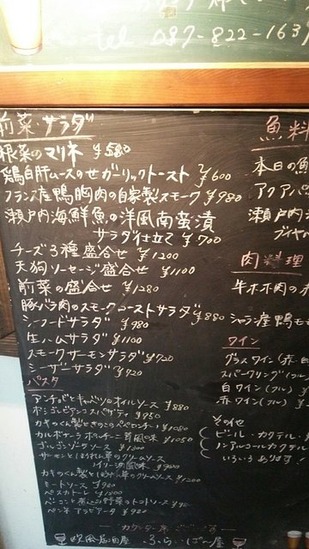 tel 087-822-163
前菜・サラダ
根菜のマリネ ¥580
鶏白肝ムースのせガーリックトースト ¥600
フランス産鴨胸肉の自家製スモーク ¥980
瀬戸内海鮮魚の洋風南蛮漬
サラダ仕立て ¥700
チーズ3種盛合せ ¥1200
天狗ソーセージ盛合せ ¥1100
前菜の盛合せ ¥1280
豚バラ肉のスモークローストサラダ ¥880
シーフードサラダ ¥980
生ハムサラダ ¥1100
スモークサーモンサラダ ¥920
シーザーサラダ ¥920
パスタ
アンチョビとキャベツのオイルソース ¥880
スパゲティ
カルボナーラ ポルチーニ茸風味
ゴルゴンゾーラソース
サーモンとほうれん草のクリームソース
ミートソース
ペスカトーレ
ペンネアラビアータ
魚料
本日の魚
アクアパ
瀬戸内
ブイヤ
肉料理
牛ホホ肉の
シャラン産鴨モ
ワイン
グラスワイン(赤・白
スパークリング(フル
白ワイン(フル
赤ワイン(フル
その他
ビール・カクテル・
ノンアルコールカクテル
いろいろあります!